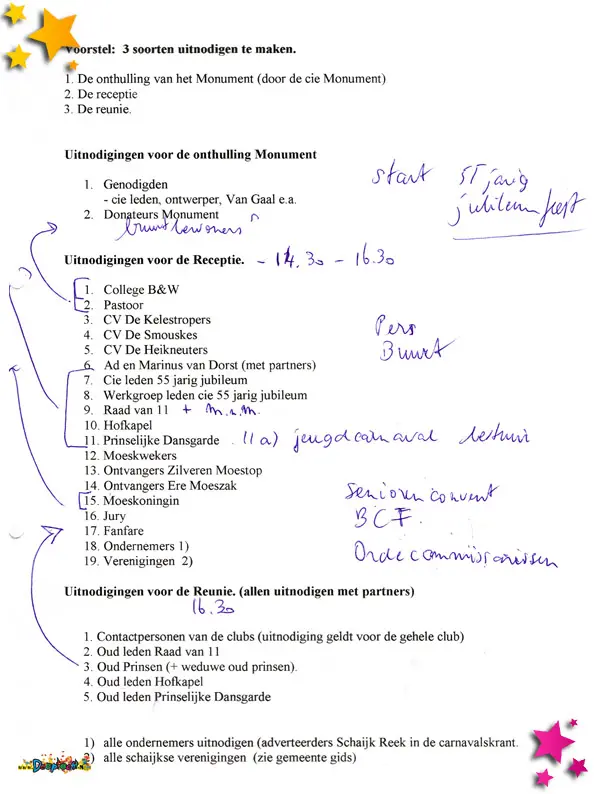 Voorstel: 3 soorten uitnodigen te maken.
1. De onthulling van het Monument (door de cie Monument)
2. De receptie
3. De reunie.
Uitnodigingen voor de onthulling Monument
start 55 jarig
jubileumfeest
1. Genodigden
- cie leden, ontwerper, Van Gaal e.a.
2. Donateurs Monument
buurtbewoners
Uitnodigingen voor de Receptie. - 14.30 - 16.30
1. College B&W
2. Pastoor
3. CV De Kelestropers
4. CV De Smouskes
5. CV De Heikneuters
Pers
Buurt
6. Ad en Marinus van Dorst (met partners)
7. Cie leden 55 jarig jubileum
8. Werkgroep leden cie 55 jarig jubileum
9. Raad van 11 +
10. Hofkapel
11. Prinselijke Dansgarde 11a) jeugdcarnaval bestuur
12. Moeskwekers
13. Ontvangers Zilveren Moestop
14. Ontvangers Ere Moeszak
15. Moeskoningin
16. Jury
17. Fanfare
18. Ondernemers 1)
19. Verenigingen 2)
Seniorenconvent
BCF.
Ordecommissarissen
Uitnodigingen voor de Reunie. (allen uitnodigen met partners)
16.30
1. Contactpersonen van de clubs (uitnodiging geldt voor de gehele club)
2. Oud leden Raad van 11
3. Oud Prinsen (+ weduwe oud prinsen).
4. Oud leden Hofkapel
5. Oud leden Prinselijke Dansgarde
1) alle ondernemers uitnodigen (adverteerders Schaijk Reek in de carnavalskrant.
2) alle schaijkse verenigingen (zie gemeente gids)